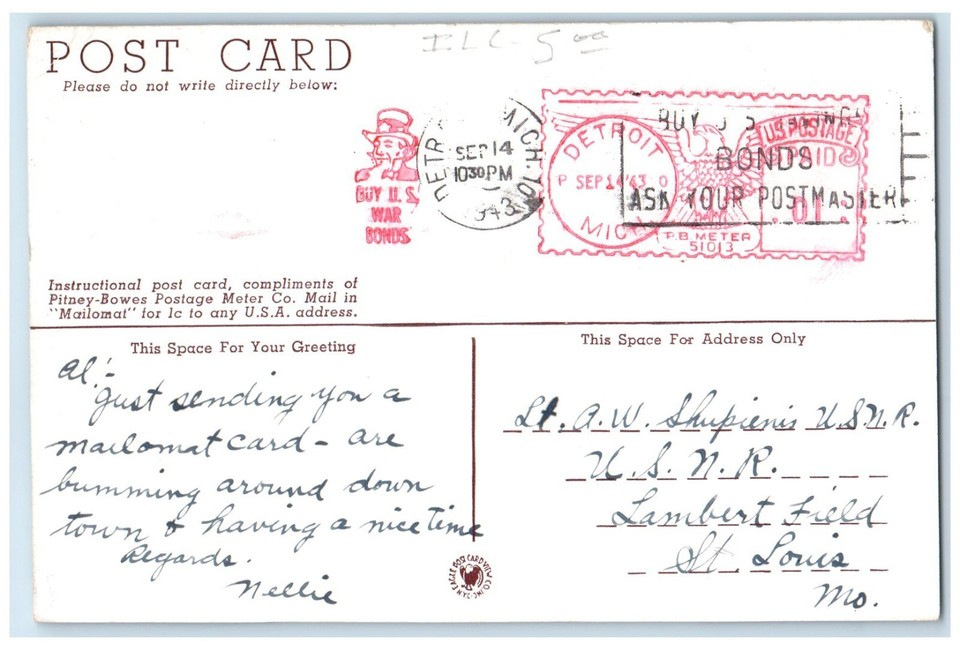 POST CARD
Please do not write directly below:
ILC- 5 00
BUY U.S.
WAR
BONDS
DETR MICH. 10
SEP 14
10 30 PM
1943
DETROIT
P SEP 14 '43 O
MICH
U.S. POSTAGE
PAID
01
P.B. METER
51013
BUY U S
BONDS
ASK YOUR POSTMASTER
Instructional post card, compliments of
Pitney-Bowes Postage Meter Co. Mail in
"Mailomat" for 1c to any U.S.A. address.
This Space For Your Greeting
This Space For Address Only
Al:-
Just sending you a
mailomat card - are
bumming around down
town & having a nice time
Regards.
Nellie
Lt. A.W. Shupienis U.S.N.R.
U.S.N.R.
Lambert Field
St. Louis
Mo.
EAGLE POST CARD VIEW CO. INC.